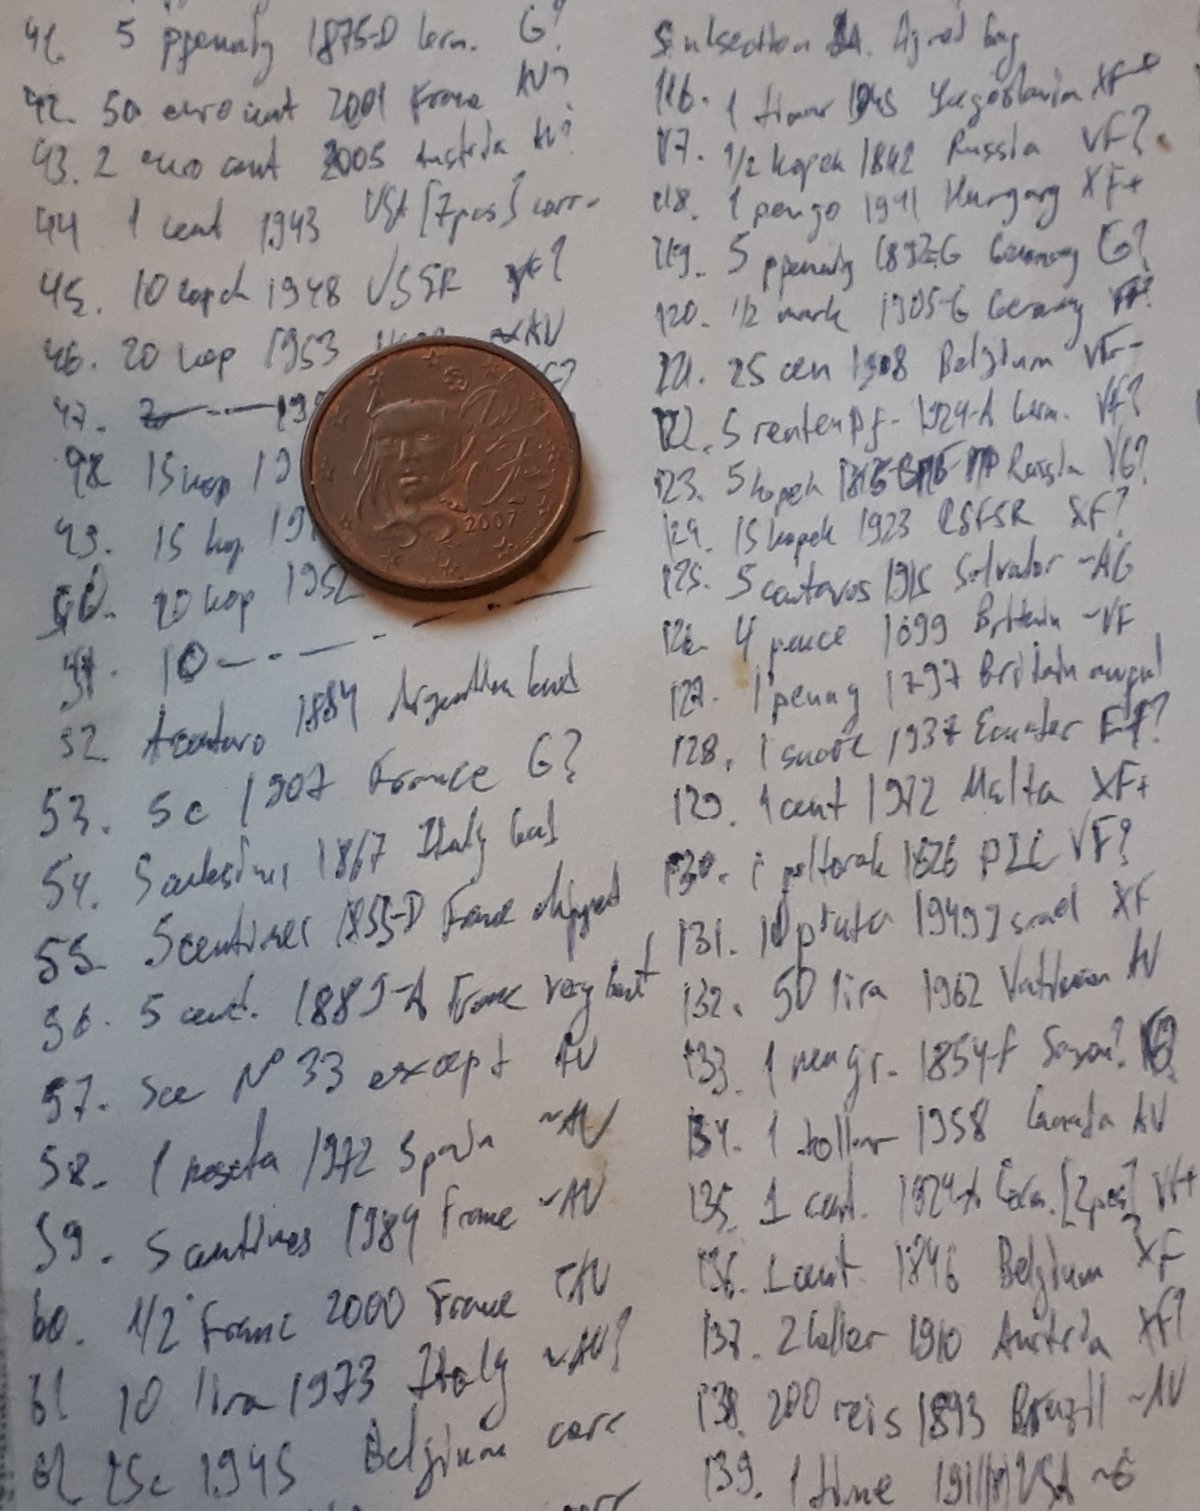 41. 5 pfennig 1875-D Germ. G?
42. 50 euro cent 2001 France AU?
43. 2 euro cent 2005 Austria AU?
44 1 cent 1943 USA [7pcs] corr.
45. 10 kopek 1948 USSR
46. 20 kop 1953 ~AU
47.
48. 15 kop
49. 15 kop
50. 20 kop 1952
51. 10
52 1884 Argentina bad
53. 5c 1907 France G?
54. 5 centesimi 1867 Italy bad
55. 5 centimes 1855-D France chipped
56. 5 cent. 1889-A France very bad
57. See № 33 except AU
58. 1 peseta 1972 Spain ~AU
59. 5 centimes 1984 France ~AU
60. 1/2 Franc 2000 France ~AU
61 10 lira 1973 Italy ~AU?
62 25c 1945 Belgium corr
Subsection bag
116. 1 dinar 1945 Yugoslavia XF+
117. 1/2 kopek 1842 Russia VF?
118. 1 pengo 1941 Hungary XF+
119. 5 pfennig 1892-G Germany G?
120. 1/2 mark 1905-G Germany VF?
121. 25 cen 1908 Belgium VF-
122. 5 rentenpf. 1924-A Germ. VF?
123. 5 kopek Russia VG?
124. 15 kopek 1923 RSFSR XF?
125. 5 centavos 1915 Salvador ~AG
126. 4 pence 1699 Britain ~VF
127. 1 penny 1797 Britain
128. 1 sucre 1937 Ecuador
129. 1 cent 1972 Malta XF+
130. 1 poltorak 1626 PLC VF?
131. 10 pruta 1949 Israel XF
132. 50 lira 1962 Vatican AU
133. 1 neugr. 1854-F
134. 1 dollar 1958 Canada AU
135. 1 cent. 1924-A Germ. [2pcs] VF+
136. 1 cent 1846 Belgium XF
137. 2 heller 1910 Austria XF?
138. 200 reis 1893 Brazil ~AU
139. 1 dime USA ~G
2007